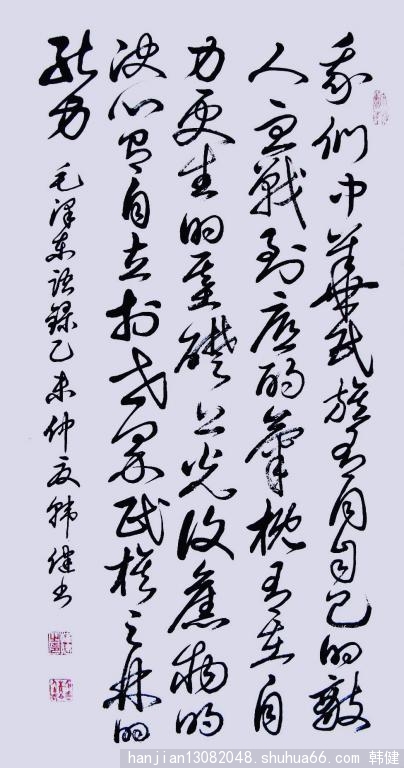 我們中華民族有同自己的敵
人血戰到底的氣概有在自
力更生的基礎上光復舊物的
決心有自立於世界民族之林的
能力 毛澤東語錄乙未仲夏韓健書
hanjian13082048.shuhua66.com 韩健